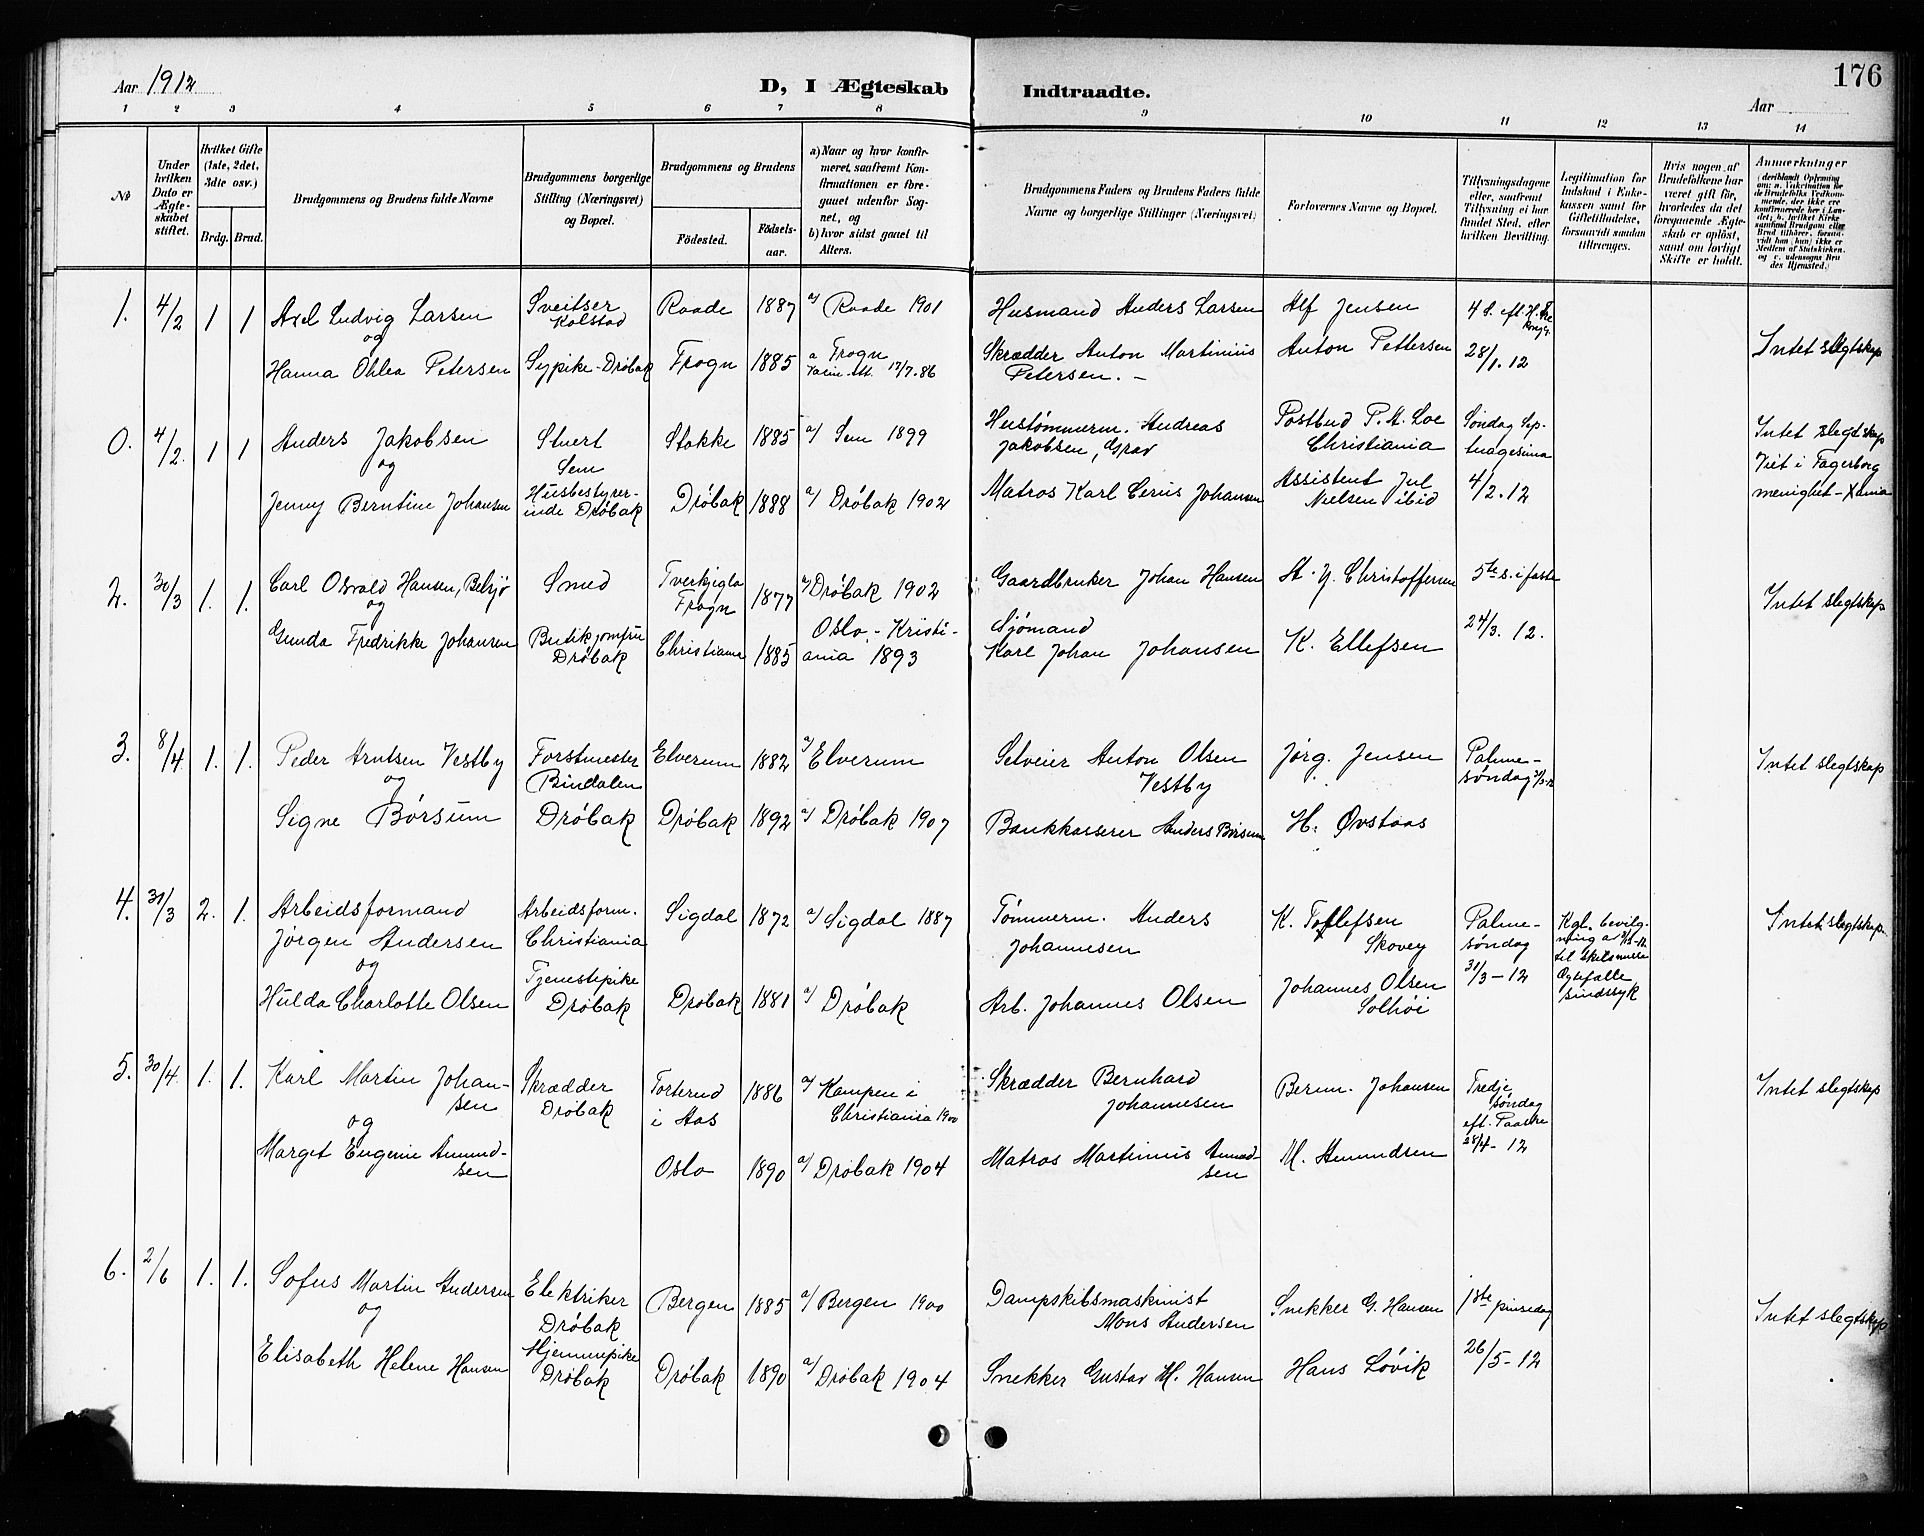 176
Aar 1912
D, I Ægteskab Indtraadte.
Aar
1 2 3 4 5 6 7 8 9 10 11 12 13 14
No
Under hvilken Dato er Ægteskabet stiftet.
Hvilket Gifte (1ste, 2det, 3die osv.)
Brdg. Brud.
Brudgommens og Brudens fulde Navne
Brudgommens borgerlige Stilling (Næringsvei) og Bopæl.
Brudgommens og Brudens
Fødested.
Fødselsaar.
a) Naar og hvor konfirmeret, saafremt Konfirmationen er foregaaet udenfor Sognet, og
b) hvor sidst gaaet til Alters.
Brudgommens Faders og Brudens Faders fulde Navne og borgerlige Stillinger (Næringsvei)
Forlovernes Navne og Bopæl.
Tillysningsdagene eller, saafremt Tillysning ei har fundet Sted, efter hvilken Bevilling.
Legitimation for Indskud i Enkekassen samt for Giftetilladelse, forsaavidt saadan tiltrænges.
Hvis nogen af Brudefolkene har været gift før, hvorledes da det foregaaende Ægteskab er opløst, samt om lovligt Skifte er holdt.
Anmærkninger
1. 4/2 1 1 Axel Ludvig Larsen Sveitser Kolstad Raade 1887 a/ Raade 1901 Husmand Anders Larsen Alf Jensen
og
Hanna Othlea Petersen Sypike - Drøbak Frogn 1885 a Frogn 17/7.86 Skrædder Anton Martinius Petersen. - Anton Pettersen 28/1.12 Intet slegtskap
0. 4/2. 1 1 Anders Jakobsen Stuert Sem Stokke 1885 a/ Sem 1899 Hustømmerm. Andreas Jakobsen, Grav Postbud P. A. Loe Christiania Søndag Septuagesima Intet slegtskap
og
Jenny Berntine Johansen Husbestyrerinde Drøbak Drøbak 1888 a/ Drøbak 1902 Matros Karl Cerius Johansen Assistent Jul Nielsen ibid 4/2.12 Viet i Fagerborg menighet - Xania
2. 30/3 1. 1. Carl Osvald Hansen, Belsjø Smed Frogn 1877 a/ Drøbak 1902 Gaardbruker Johan Hansen 5te s. i faste Intet slegtskap
og
Gunda Fredrikke Johansen Butikjomfru Drøbak Christiania 1885 Oslo, - Kristiania 1893 Sjømand Karl Johan Johansen K. Ellefsen 24/3. 12.
3. 8/4 1. 1. Peder Arntsen Vestby Forstmester Bindalen Elverum 1882 a/ Elverum Selveier Anton Olsen Vestby Jørg. Jensen Palmesøndag Intet slegtskap
og
Signe Børsum Drøbak Drøbak 1892 a/ Drøbak 1907 Bankkasserer Anders Børsum H. Øvstaas
4. 31/3 2. 1. Arbeidsformand Jørgen Andersen Arbeidsform. Christiania Sigdal 1872 a/ Sigdal 1887 Tømmerm. Anders Johannesen K. Tollefsen Skovey Palmesøndag 31/3 - 12 Kgl. bevilgning til Ægtefælle sindssyk Intet slegtskap
og
Hulda Charlotte Olsen Tjenestepike Drøbak Drøbak 1881 a/ Drøbak Arb. Johannes Olsen Johannes Olsen Solhøi
5. 30/4. 1. 1. Karl Martin Johansen Skrædder Drøbak Torterud i Aas 1886 a/ Kampen i Christiania 1900 Skrædder Bernhard Johannesen Bernn. Johansen Tredje søndag eft. Paaske 28/4 - 12 Intet slegtskap
og
Marget Eugenie Amundsen Oslo 1890 a/ Drøbak 1904 Matros Martinius Amundsen M. Amundsen
6. 2/6 1. 1. Sofus Martin Andersen Elektriker Drøbak Bergen 1885 a/ Bergen 1900 Dampskibsmaskinist Mons Andersen Snekker G. Hansen 1ste pinsedag Intet slegtskap
og
Elisabeth Helene Hansen Hjemmepike Drøbak Drøbak 1890 a/ Drøbak 1904 Snekker Gustav M. Hansen Hans Løvik 26/5 - 12